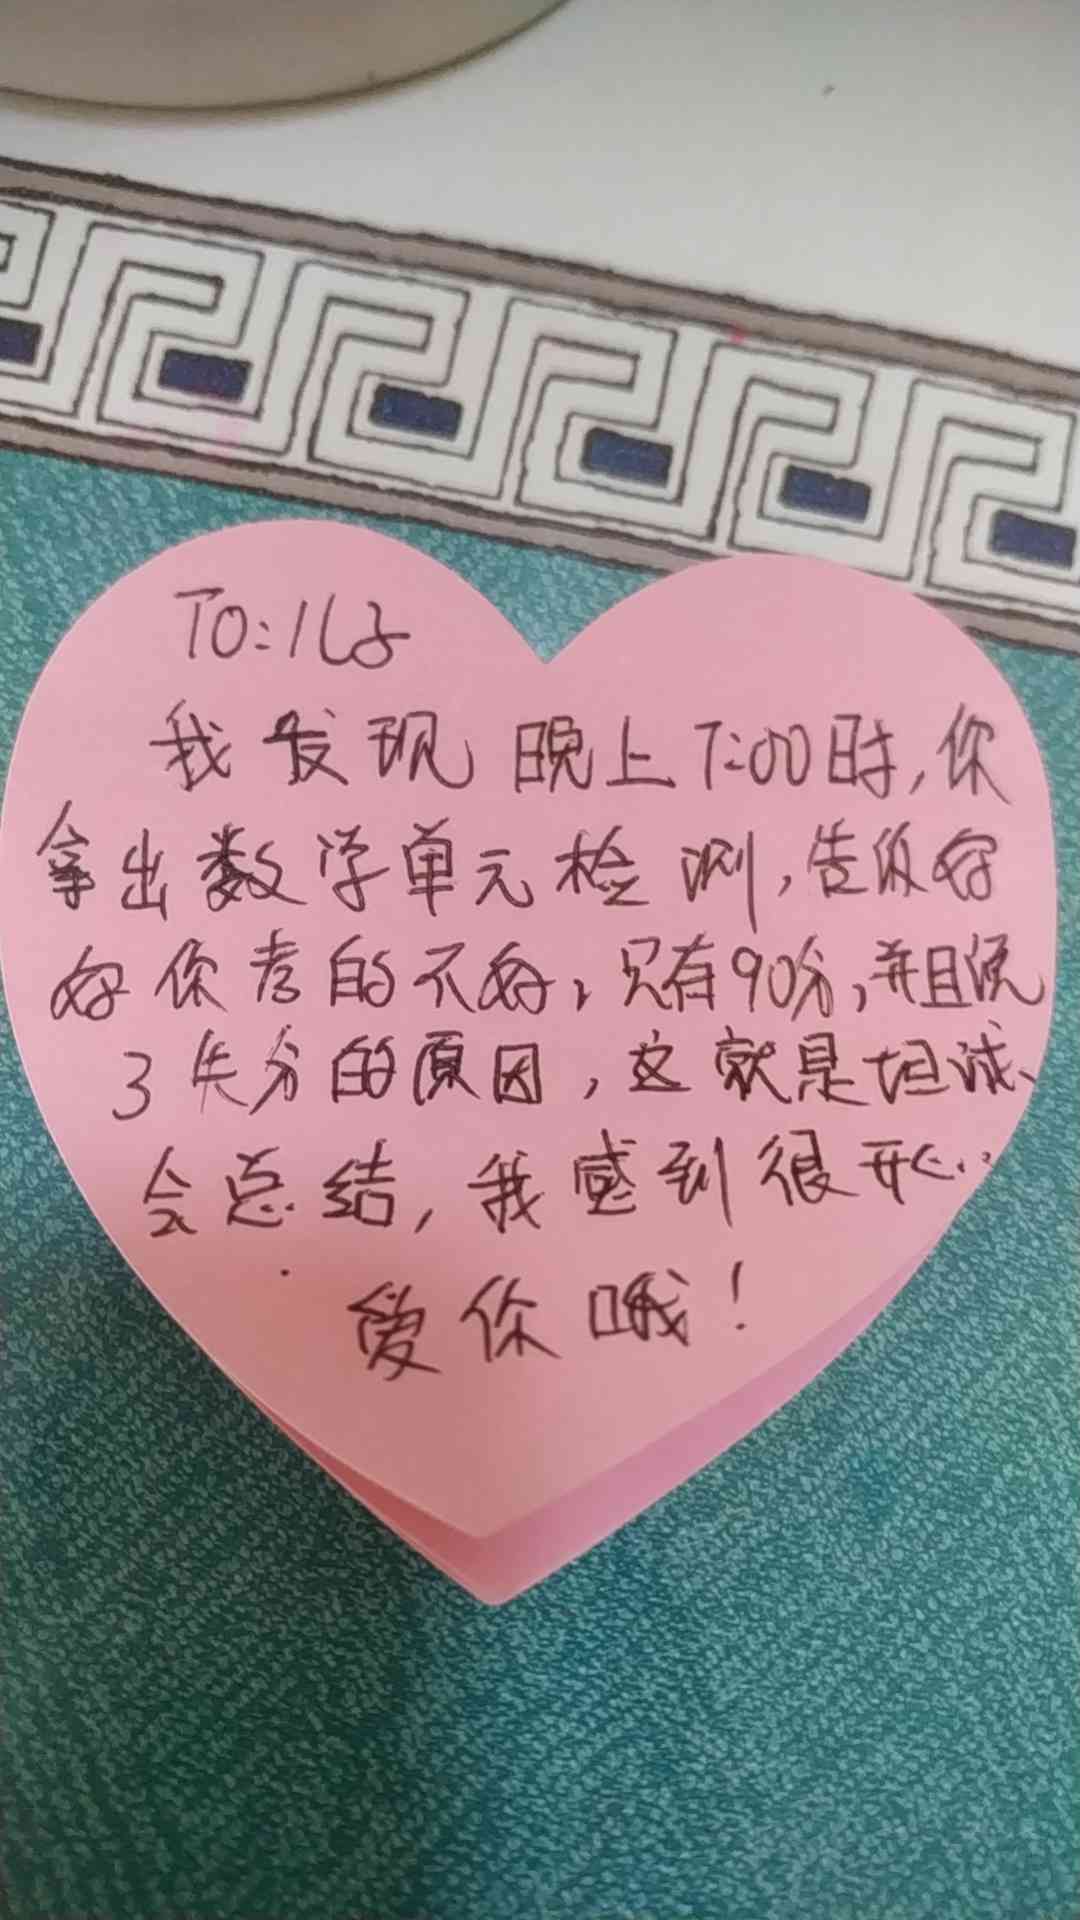 TO:儿子
我发现晚上7:00时,你
拿出数学单元检测,告诉妈
妈你考的不好,只有90分,并且说
了失分的原因,这就是坦诚、
会总结,我感到很开心..
爱你哦!